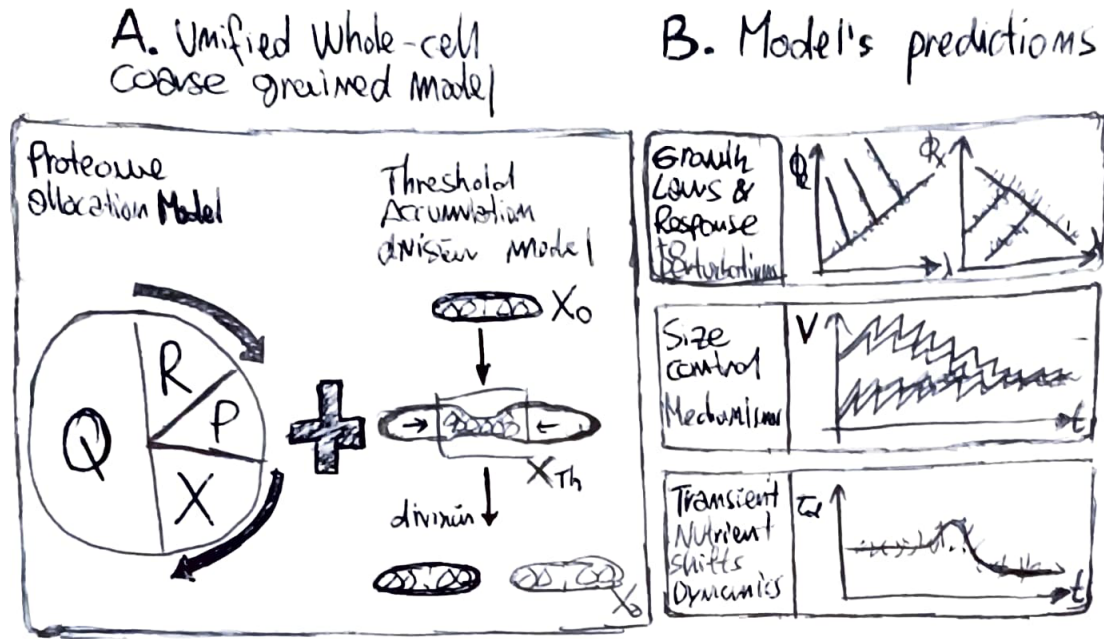 A. Unified Whole-cell
coarse grained model
B. Model's predictions
Proteome
allocation Model
Threshold
Accumulation
division model
R
P
Q
X
X0
XTh
division
X0
Growth
Laws &
Response
to
perturbations
ΦR
λ
Φx
λ
Size
control
Mechanisms
V
t
Transient
Nutrient
shifts
Dynamics
τd
t